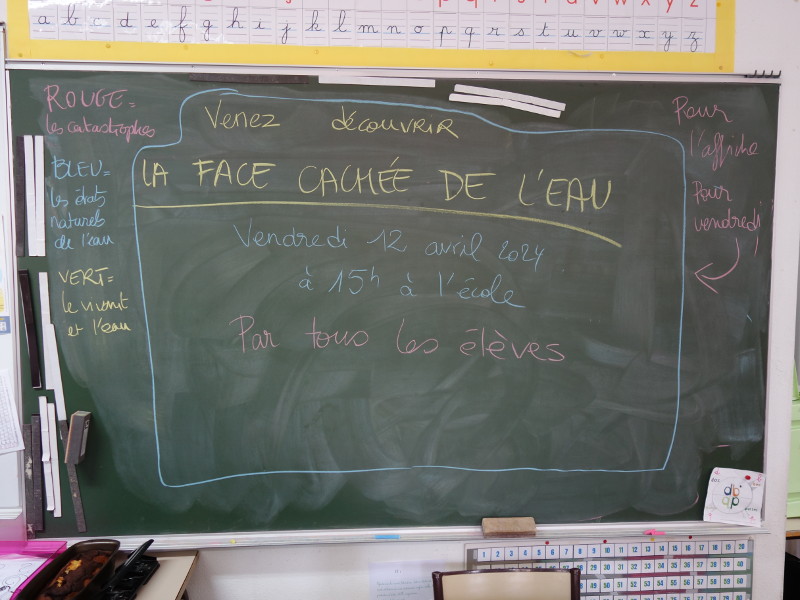 a b c d e f g h i j k l m n o p q r s t u v w x y z
ROUGE =
les catastrophes
BLEU =
les états
naturels
de l'eau
VERT =
le vivant
et l'eau
Venez découvrir
LA FACE CACHÉE DE L'EAU
Vendredi 12 avril 2024
à 15h à l'école
Par tous les élèves
Pour
l'affiche
Pour
vendredi
db
qp
1 2 3 4 5 6 7 8 9 10 11 12 13 14 15 16 17 18 19 20